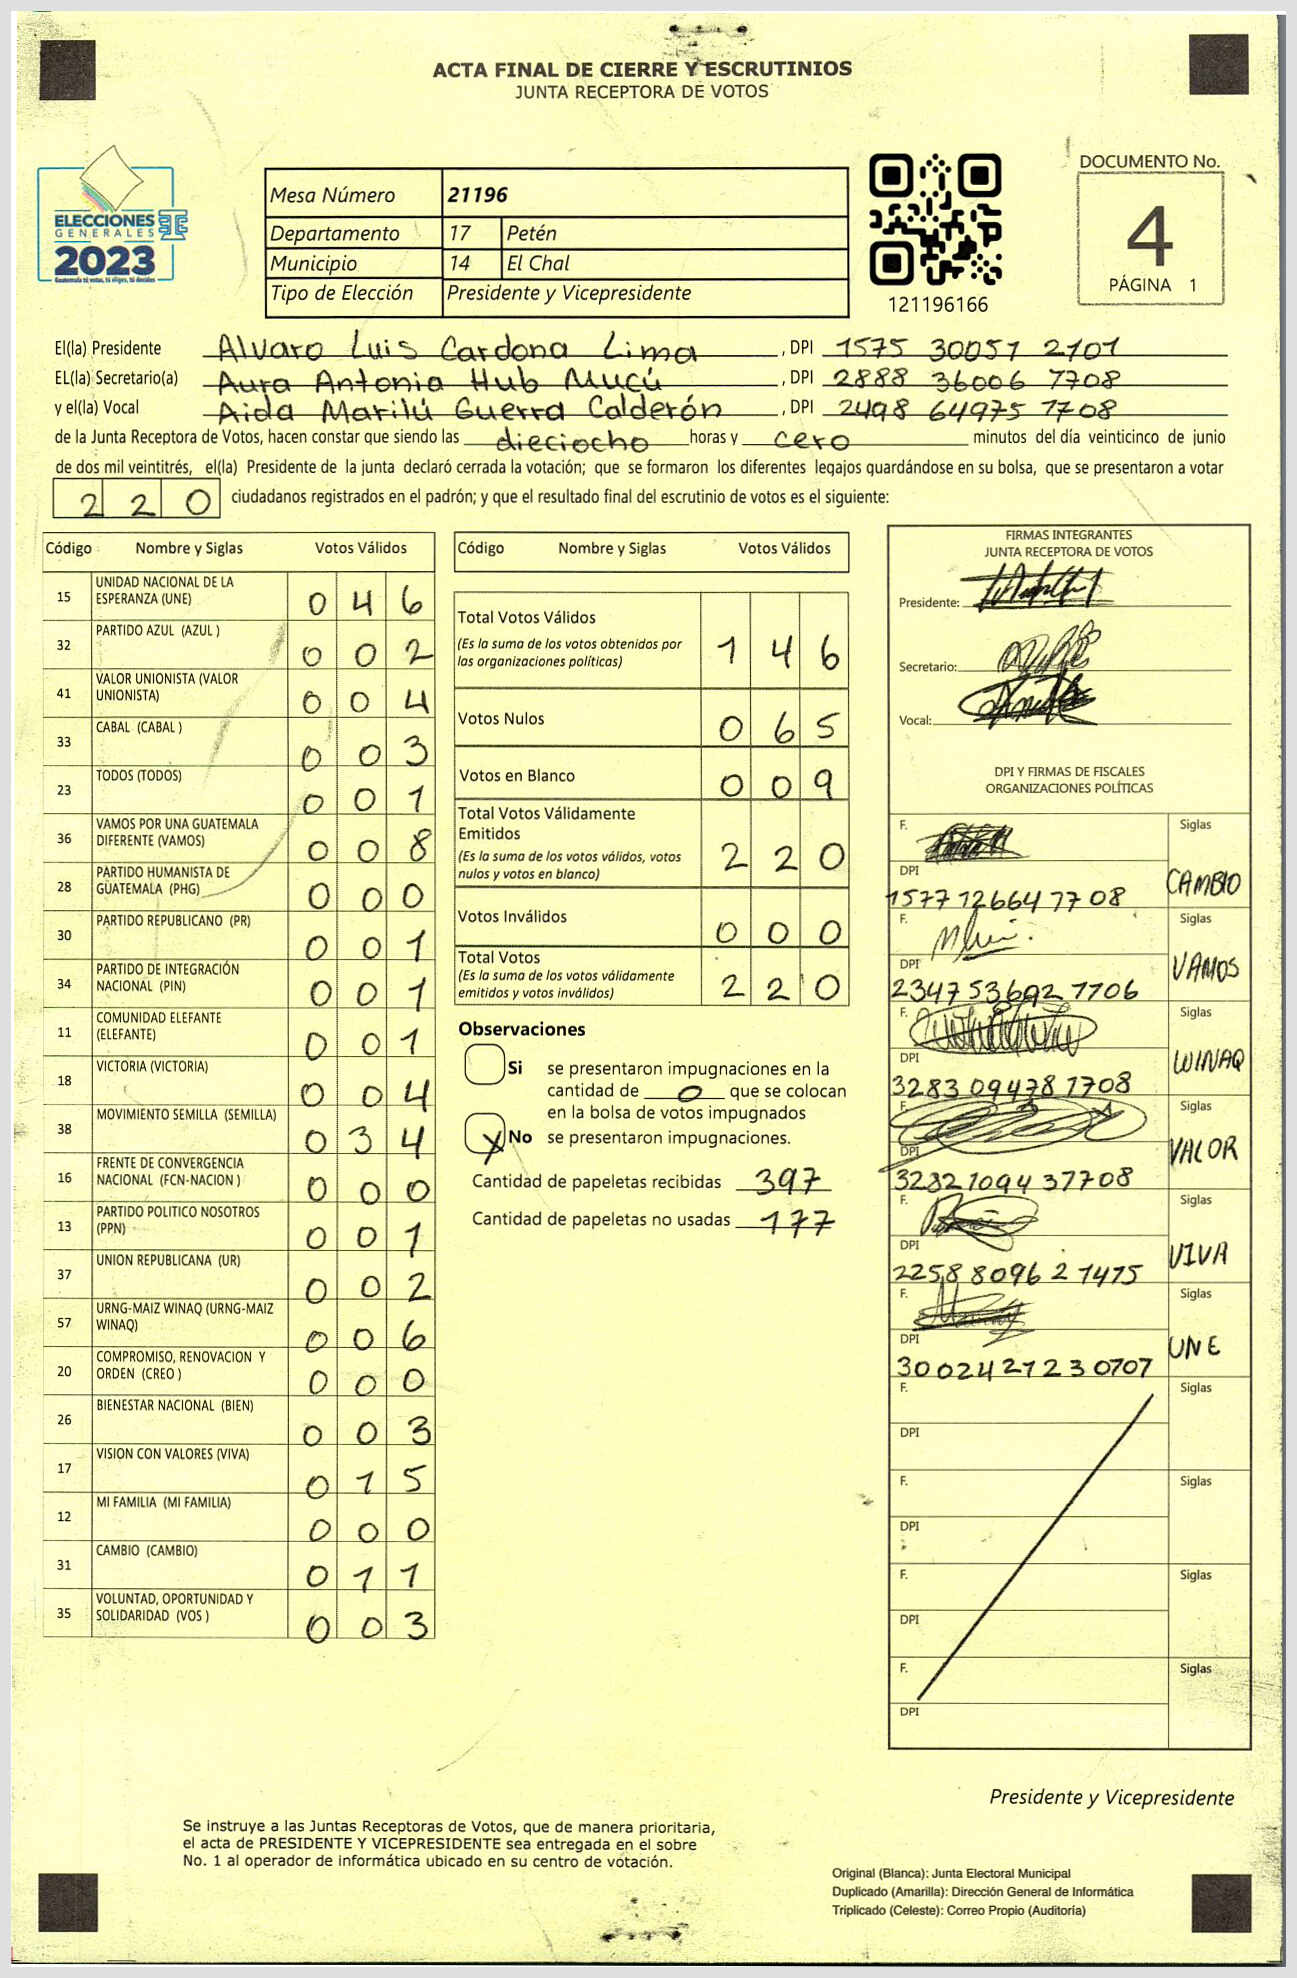 ACTA FINAL DE CIERRE Y ESCRUTINIOS
JUNTA RECEPTORA DE VOTOS
ELECCIONES
GENERALES
2023
Guatemala tú votas, tú eliges, tú decides
Mesa Número 21196
Departamento 17 Petén
Municipio 14 El Chal
Tipo de Elección Presidente y Vicepresidente
121196166
DOCUMENTO No.
4
PÁGINA 1
El(la) Presidente Alvaro Luis Cardona Lima, DPI 1575 30051 2101
EL(la) Secretario(a) Aura Antonia Hub Mucú, DPI 2888 36006 1708
y el(la) Vocal Aida Marilú Guerra Calderón, DPI 2498 64975 1708
de la Junta Receptora de Votos, hacen constar que siendo las dieciocho horas y cero minutos del día veinticinco de junio
de dos mil veintitrés, el(la) Presidente de la junta declaró cerrada la votación; que se formaron los diferentes legajos guardándose en su bolsa, que se presentaron a votar
220 ciudadanos registrados en el padrón; y que el resultado final del escrutinio de votos es el siguiente:
Código Nombre y Siglas Votos Válidos
15 UNIDAD NACIONAL DE LA ESPERANZA (UNE) 046
32 PARTIDO AZUL (AZUL ) 002
41 VALOR UNIONISTA (VALOR UNIONISTA) 004
33 CABAL (CABAL ) 003
23 TODOS (TODOS) 001
36 VAMOS POR UNA GUATEMALA DIFERENTE (VAMOS) 008
28 PARTIDO HUMANISTA DE GUATEMALA (PHG) 000
30 PARTIDO REPUBLICANO (PR) 001
34 PARTIDO DE INTEGRACIÓN NACIONAL (PIN) 001
11 COMUNIDAD ELEFANTE (ELEFANTE) 001
18 VICTORIA (VICTORIA) 004
38 MOVIMIENTO SEMILLA (SEMILLA) 034
16 FRENTE DE CONVERGENCIA NACIONAL (FCN-NACION ) 000
13 PARTIDO POLITICO NOSOTROS (PPN) 001
37 UNION REPUBLICANA (UR) 002
57 URNG-MAIZ WINAQ (URNG-MAIZ WINAQ) 006
20 COMPROMISO, RENOVACION Y ORDEN (CREO ) 000
26 BIENESTAR NACIONAL (BIEN) 003
17 VISION CON VALORES (VIVA) 015
12 MI FAMILIA (MI FAMILIA) 000
31 CAMBIO (CAMBIO) 011
35 VOLUNTAD, OPORTUNIDAD Y SOLIDARIDAD (VOS ) 003
Código Nombre y Siglas Votos Válidos
Total Votos Válidos 146
(Es la suma de los votos obtenidos por
las organizaciones políticas)
Votos Nulos 065
Votos en Blanco 009
Total Votos Válidamente
Emitidos 220
(Es la suma de los votos válidos, votos
nulos y votos en blanco)
Votos Inválidos 000
Total Votos 220
(Es la suma de los votos válidamente
emitidos y votos inválidos)
Observaciones
Si se presentaron impugnaciones en la
cantidad de 0 que se colocan
en la bolsa de votos impugnados
X No se presentaron impugnaciones.
Cantidad de papeletas recibidas 397
Cantidad de papeletas no usadas 177
FIRMAS INTEGRANTES
JUNTA RECEPTORA DE VOTOS
Presidente:
Secretario:
Vocal:
DPI Y FIRMAS DE FISCALES
ORGANIZACIONES POLÍTICAS
F. Siglas
DPI CAMBIO
1577 12664 77 08
F. Siglas
DPI VAMOS
2347 53692 1706
F. Siglas
DPI WINAQ
3283 09478 1708
F. Siglas
DPI VALOR
3282 1094 37708
F. Siglas
DPI VIVA
2258 8096 2 1415
F. Siglas
DPI UNE
30024 21230707
F. Siglas
DPI
F. Siglas
DPI
F. Siglas
DPI
F. Siglas
DPI
Presidente y Vicepresidente
Se instruye a las Juntas Receptoras de Votos, que de manera prioritaria,
el acta de PRESIDENTE Y VICEPRESIDENTE sea entregada en el sobre
No. 1 al operador de informática ubicado en su centro de votación.
Original (Blanca): Junta Electoral Municipal
Duplicado (Amarilla): Dirección General de Informática
Triplicado (Celeste): Correo Propio (Auditoría)